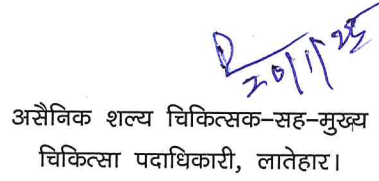 20/11/25
असैनिक शल्य चिकित्सक-सह-मुख्य
चिकित्सा पदाधिकारी, लातेहार।